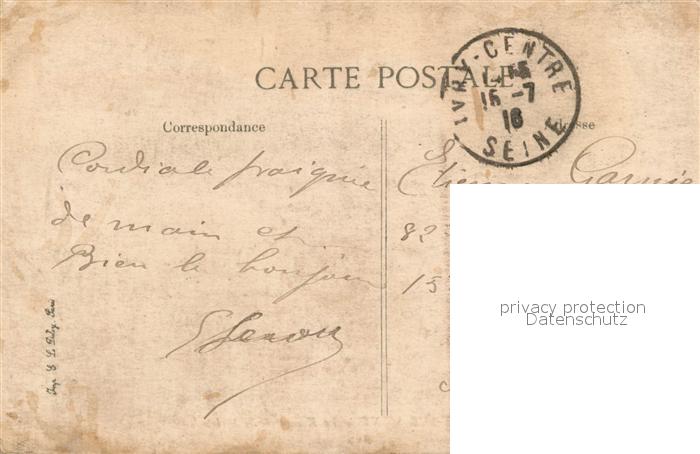 CARTE POSTALE
IVRY-CENTRE
15 -7
16
SEINE
Correspondance
Cordiale poaignée
de main et
Bien le bonjour
Etienne Garnie
82
15
privacy protection
Datenschutz